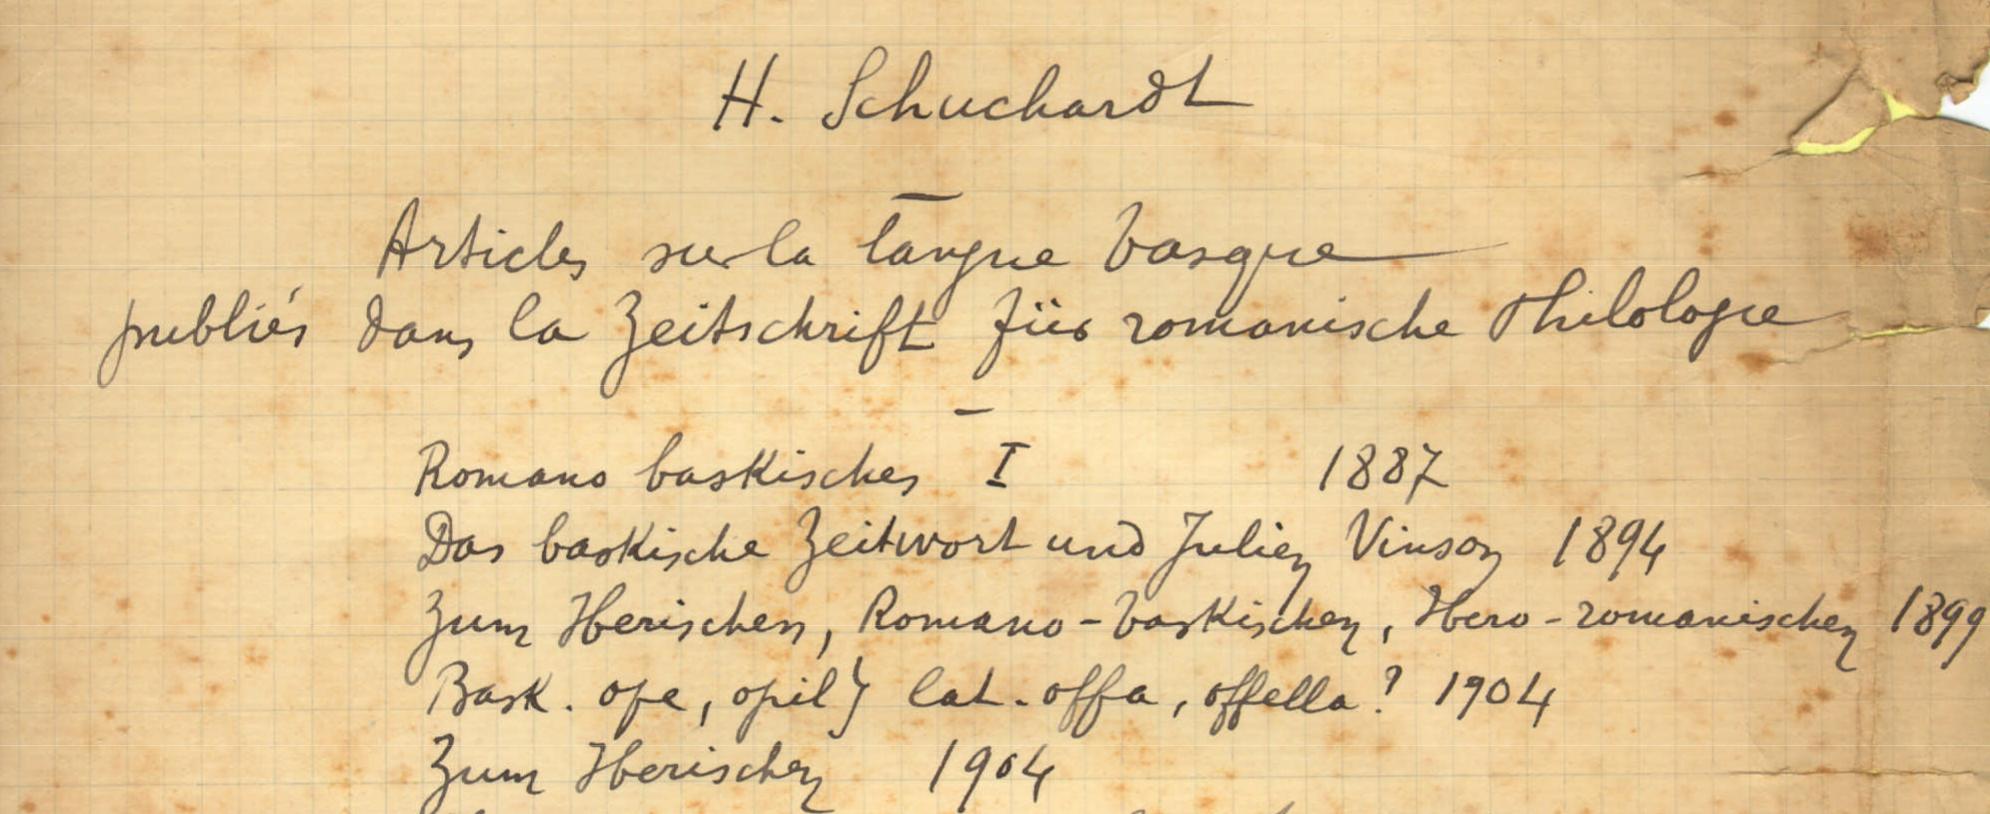 H. Schuchardt
Articles sur la langue basque
publiés dans la Zeitschrift für romanische Philologie
Romano baskisches I 1887
Das baskische Zeitwort und Julien Vinson 1894
Zum Iberischen, Romano-baskischen, Ibero-romanischen 1899
Bask. ope, opil } lat. offa, offella? 1904
Zum Iberischen 1904